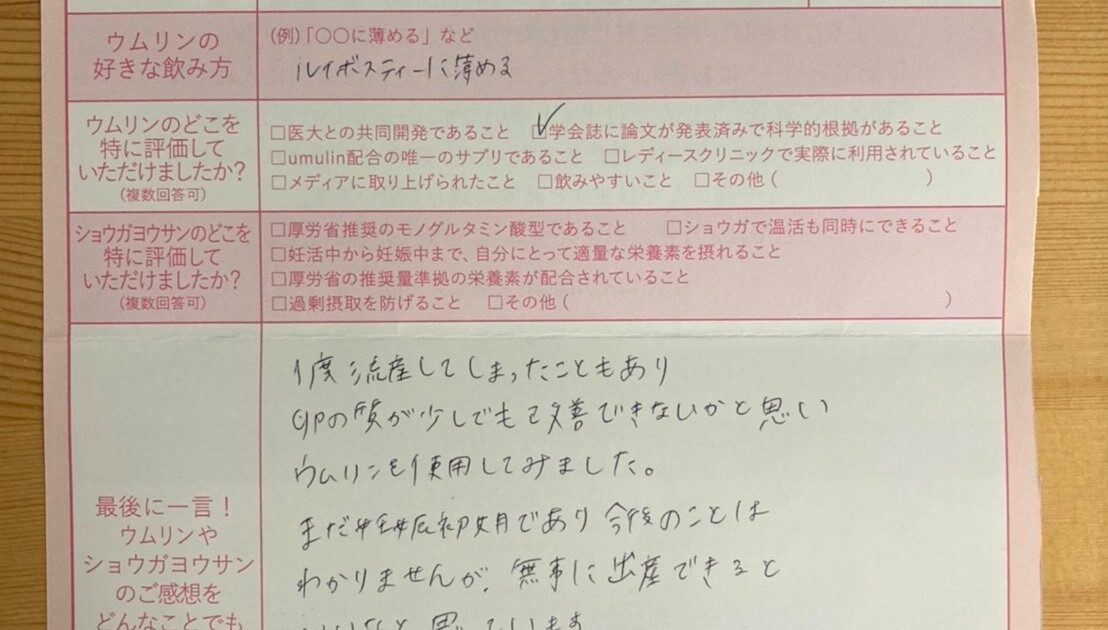 ウムリンの
好きな飲み方
(例)「○○に薄める」など
ルイボスティーに薄める
ウムリンのどこを
特に評価して
いただけましたか?
(複数回答可)
□医大との共同開発であること ☑学会誌に論文が発表済みで科学的根拠があること
□umulin配合の唯一のサプリであること □レディースクリニックで実際に利用されていること
□メディアに取り上げられたこと □飲みやすいこと □その他( )
ショウガヨウサンのどこを
特に評価して
いただけましたか?
(複数回答可)
□厚労省推奨のモノグルタミン酸型であること □ショウガで温活も同時にできること
□妊活中から妊娠中まで、自分にとって適量な栄養素を摂れること
□厚労省の推奨量準拠の栄養素が配合されていること
□過剰摂取を防げること □その他( )
最後に一言!
ウムリンや
ショウガヨウサン
のご感想を
どんなことでも
1度流産してしまったこともあり
卵の質が少しでも改善できないかと思い
ウムリンを使用してみました。
まだ妊娠初期であり今後のことは
わかりませんが、無事に出産できると
いいなと思っています